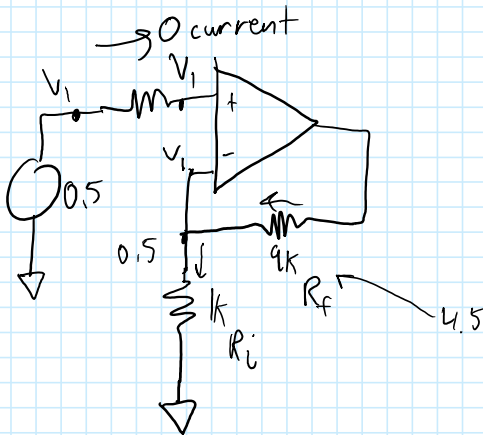 → 0 current
V₁
V₁
+
V₁
-
0.5
0.5
9K
1K
Rf
4.5
Ri